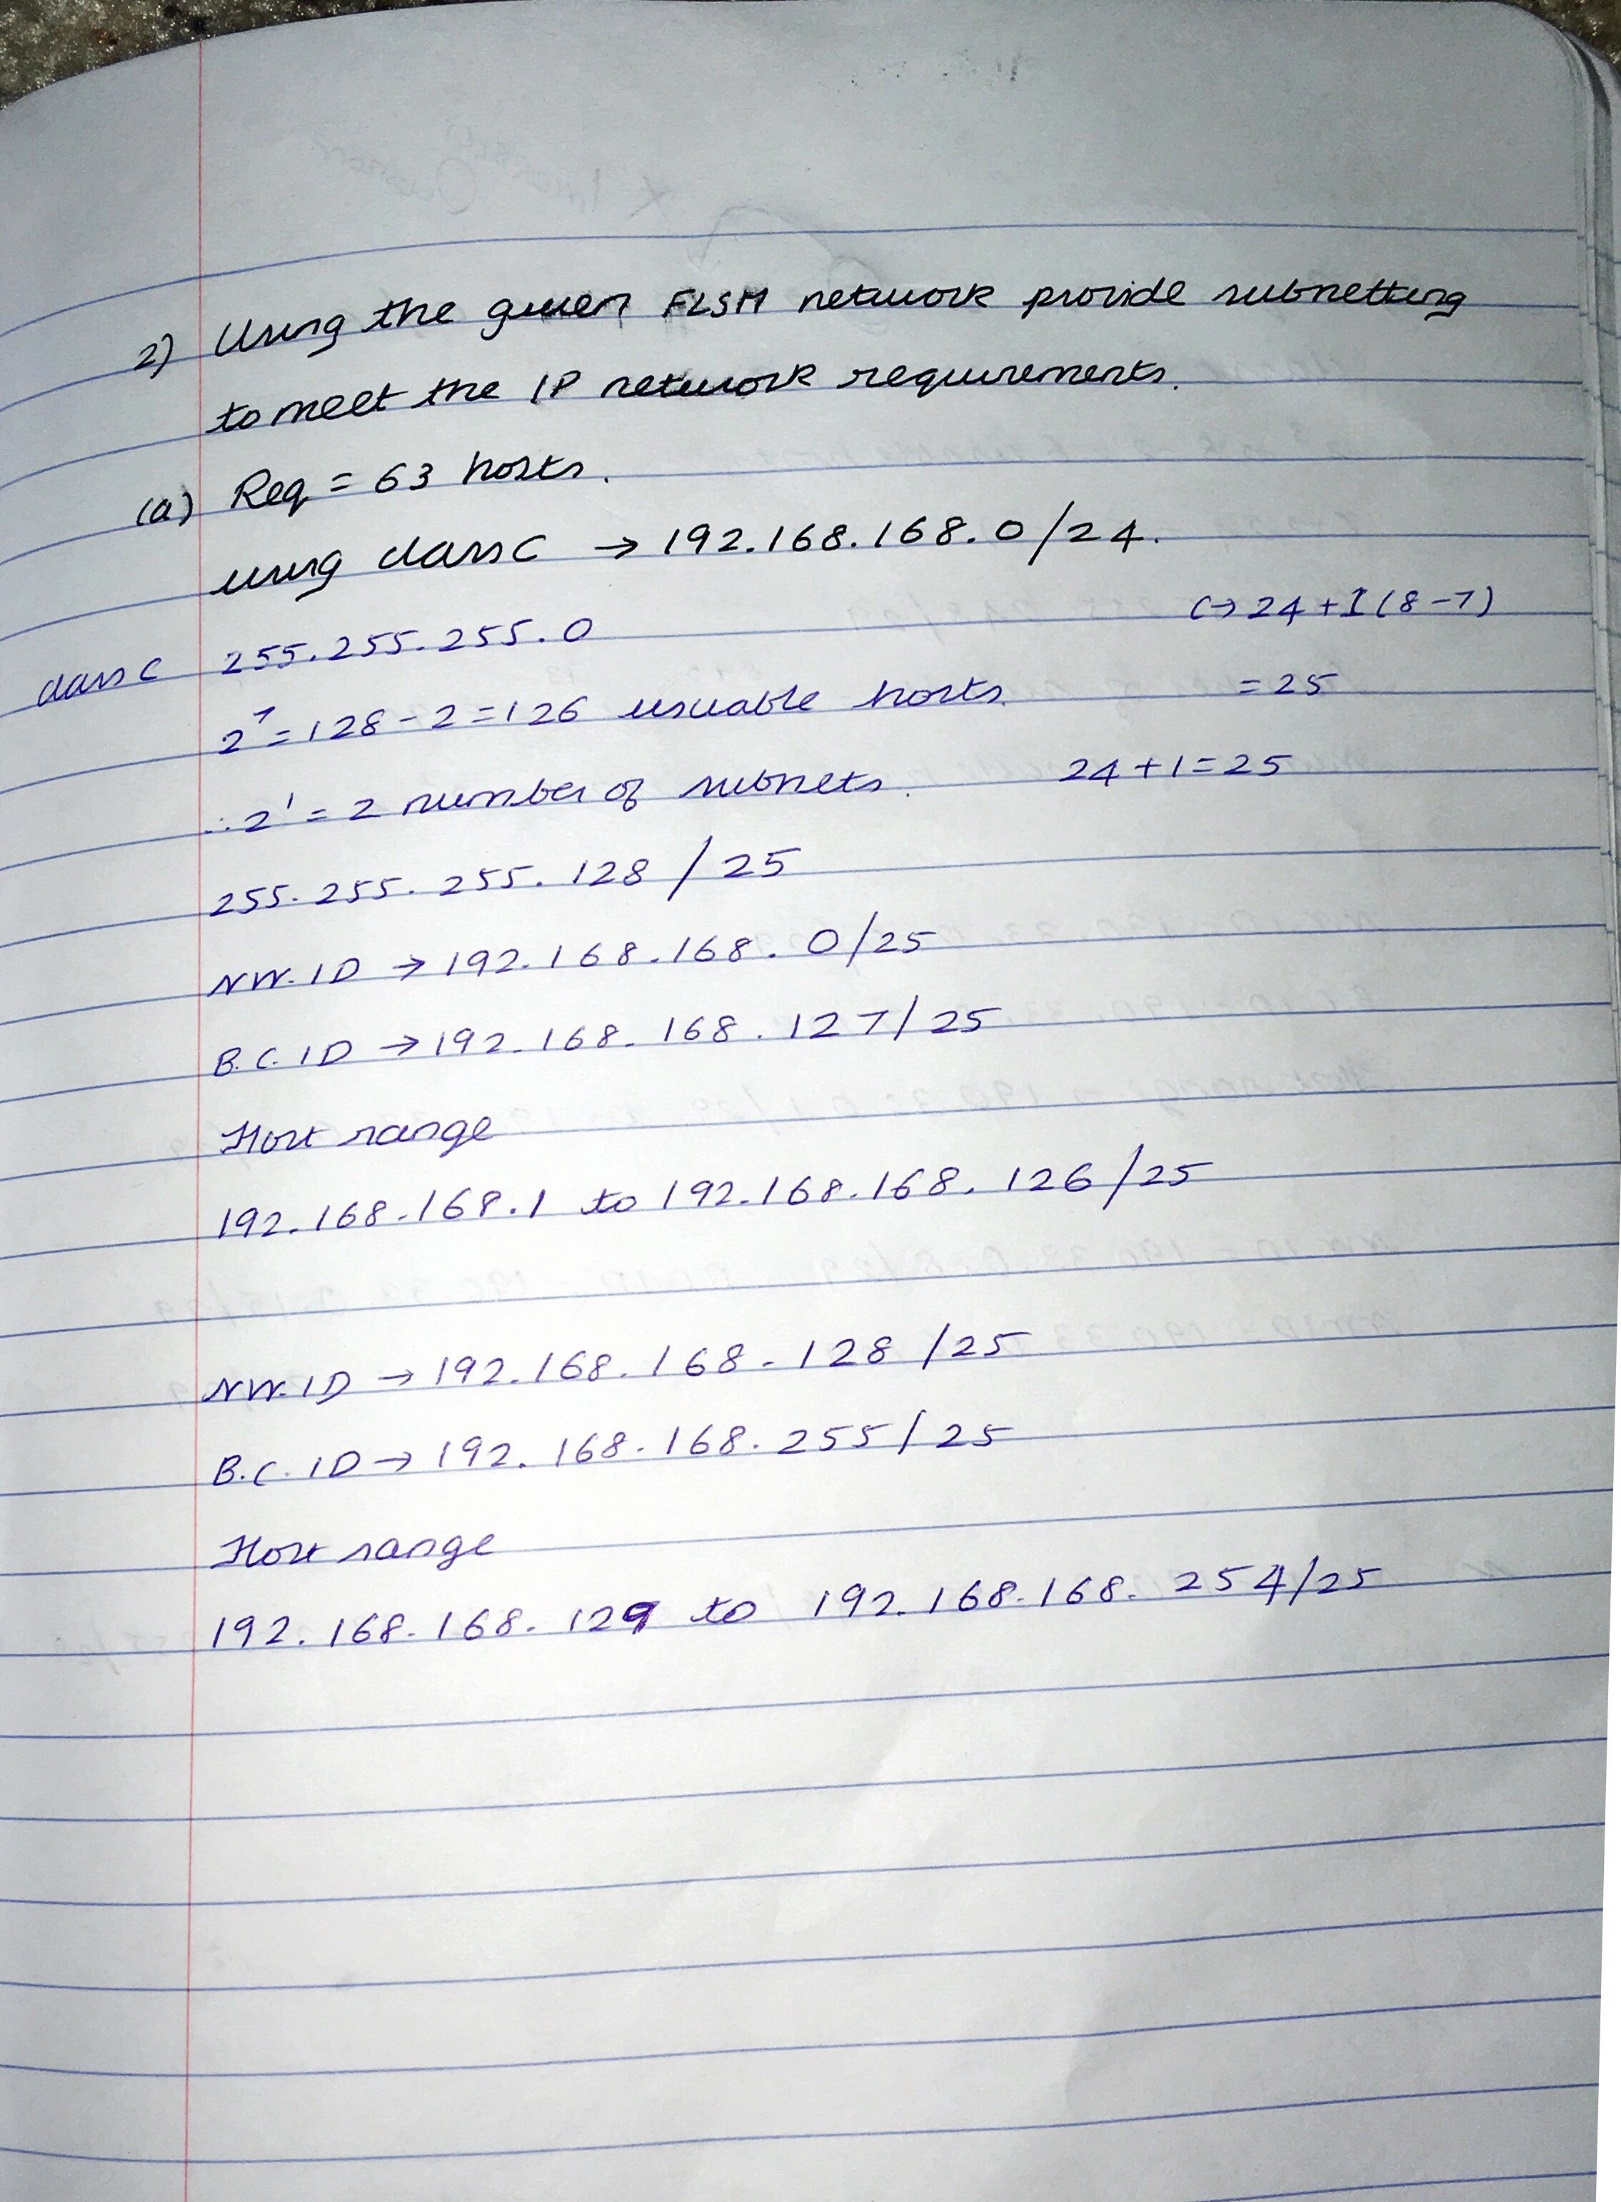 2) Using the given FLSM network provide subnetting
to meet the IP network requirements.
(a) Req = 63 hosts.
using class C → 192.168.168.0/24.
class C 255.255.255.0 C→ 24+1(8-7)
2⁷=128-2=126 usuable hosts. =25
∴2¹=2 number of subnets. 24+1=25
255.255.255.128/25
NW.ID → 192.168.168.0/25
B.C.ID → 192.168.168.127/25
Host range
192.168.168.1 to 192.168.168.126/25
NW.ID → 192.168.168.128/25
B.C.ID → 192.168.168.255/25
Host range
192.168.168.129 to 192.168.168.254/25